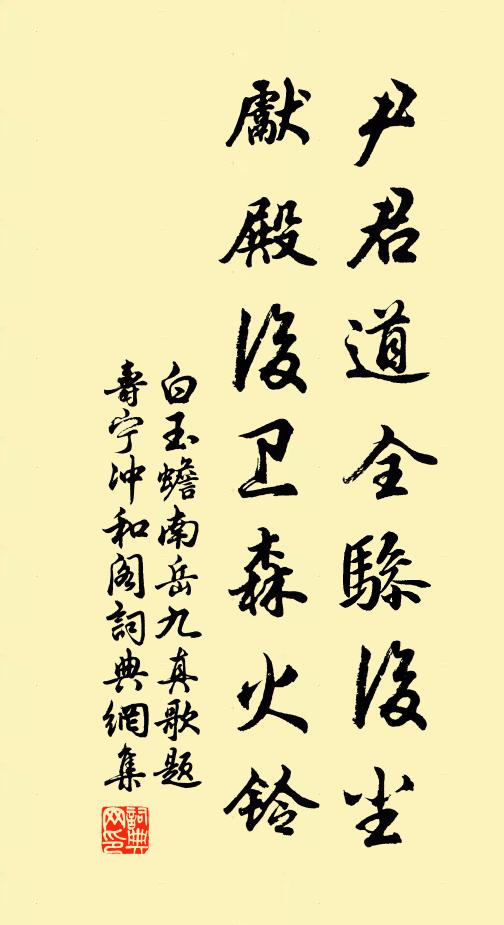 尹君道全驂後尘
獻殿後卫森火铃
白玉蟾南岳九真歌题
壽宁冲和阁詞典網集
詞典網印